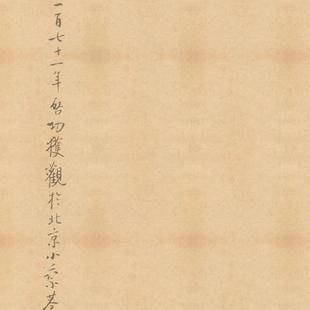 一百七十一年啓功獲觀於北京小乘巷